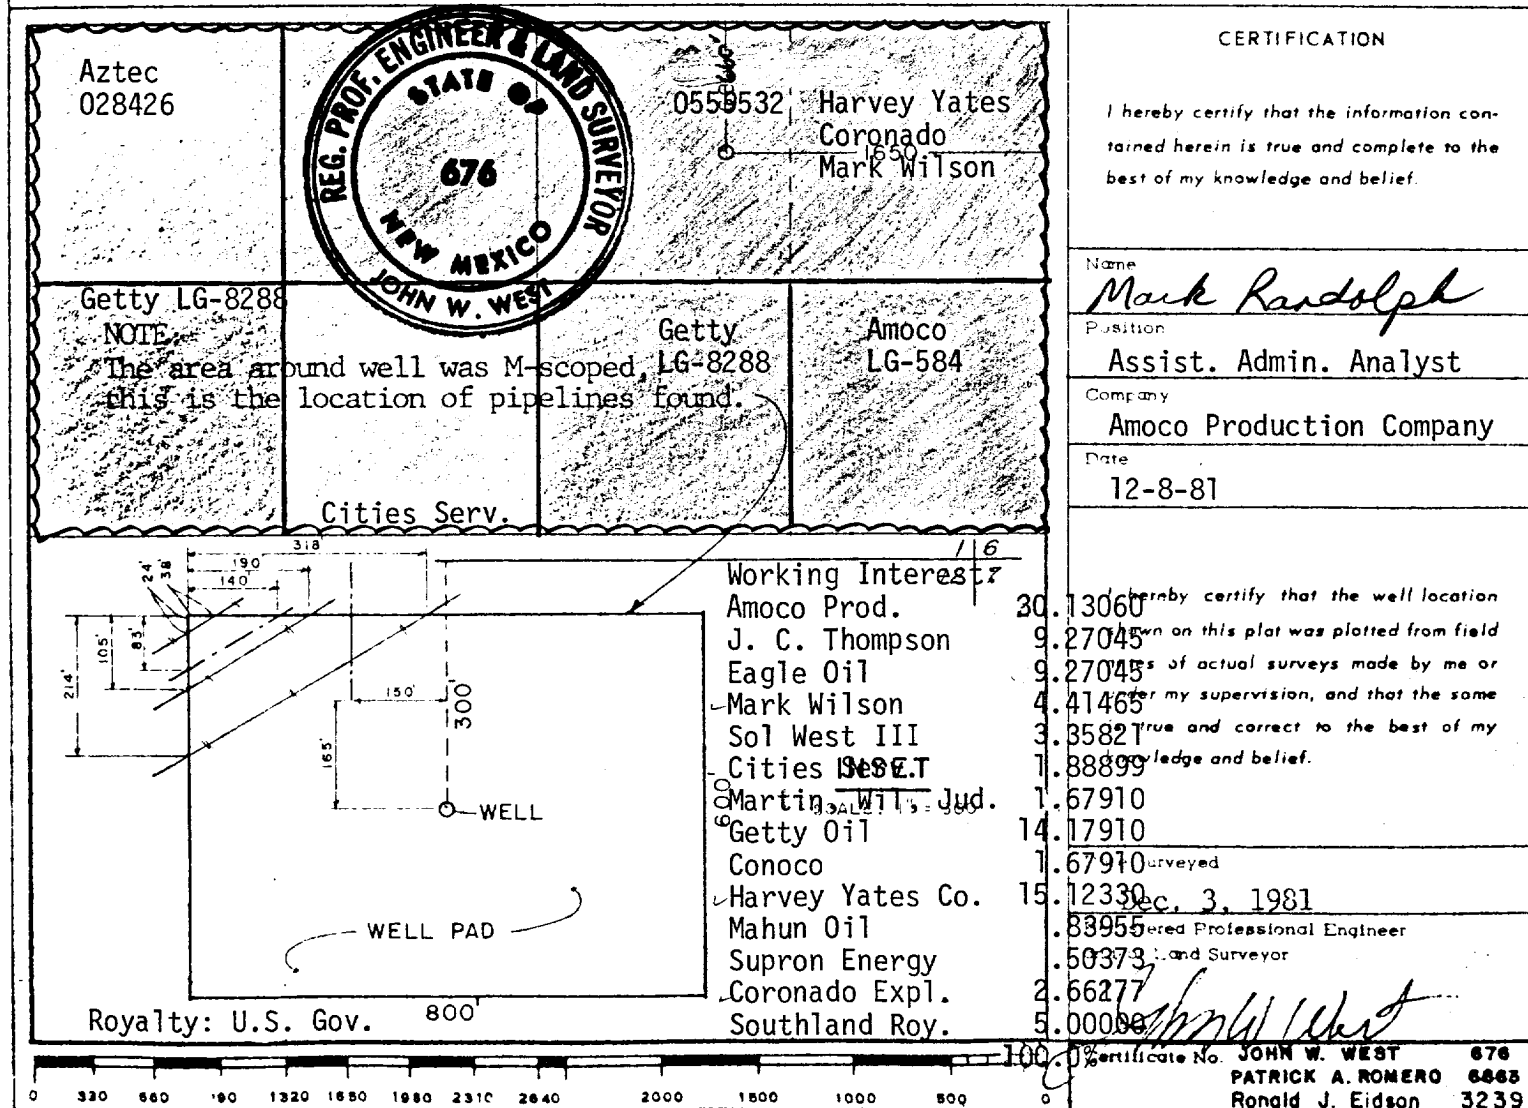 Aztec
028426
REG. PROF. ENGINEER & LAND SURVEYOR
STATE OF
676
NEW MEXICO
JOHN W. WEST
660'
0559532
Harvey Yates
Coronado
1650
Mark Wilson
Getty LG-8288
NOTE:
The area around well was M-scoped,
this is the location of pipelines found.
Getty
LG-8288
Amoco
LG-584
Cities Serv.
318
190
140'
24'
38'
214'
105'
83'
150'
165'
300'
WELL
WELL PAD
600
800'
Royalty: U.S. Gov.
INSET
Working Interest
Amoco Prod. 30.13060
J. C. Thompson 9.27045
Eagle Oil 9.27045
Mark Wilson 4.41465
Sol West III 3.35821
Cities Serv. 1.88899
Martin, Wil., Jud. 1.67910
Getty Oil 14.17910
Conoco 1.67910
Harvey Yates Co. 15.12330
Mahun Oil .83955
Supron Energy .50373
Coronado Expl. 2.66277
Southland Roy. 5.00000
100.0%
0 330 660 '90 1320 1650 1980 2310 2640 2000 1500 1000 500 0
CERTIFICATION
I hereby certify that the information con-
tained herein is true and complete to the
best of my knowledge and belief.
Name
Mark Randolph
Position
Assist. Admin. Analyst
Company
Amoco Production Company
Date
12-8-81
I hereby certify that the well location
shown on this plat was plotted from field
notes of actual surveys made by me or
under my supervision, and that the same
is true and correct to the best of my
knowledge and belief.
Surveyed
Dec. 3, 1981
Registered Professional Engineer
Land Surveyor
John W West
Certificate No. JOHN W. WEST 676
PATRICK A. ROMERO 6663
Ronald J. Eidson 3239